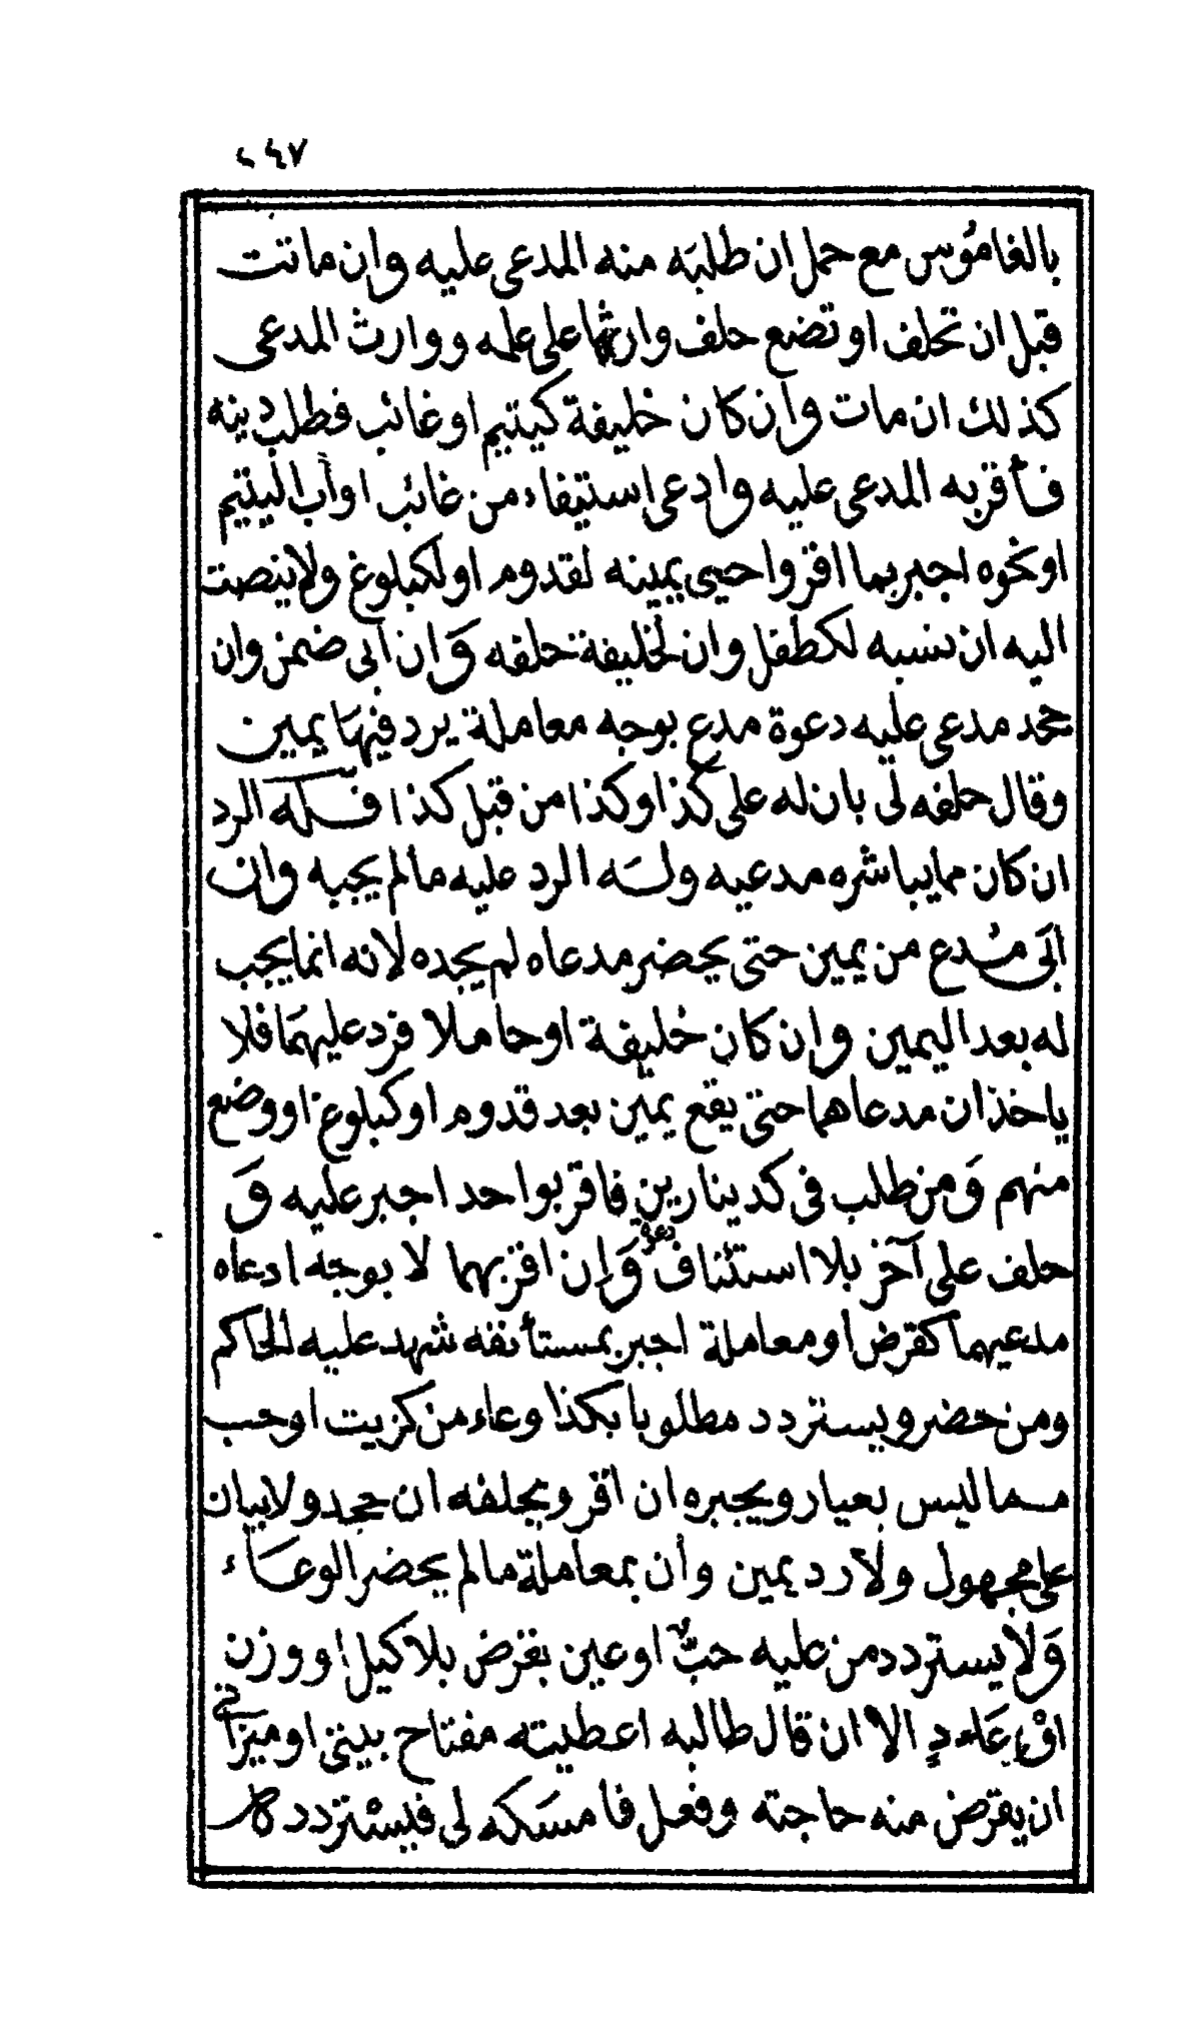 ٢٤٧
بالغامُوس مع حمل ان طلبَه منه المدعى عليه وان ماتت
قبل ان تحلف او تضع حلف وارثها على علمه ووارث المدعى
كذلك ان مات وان كان خليفة كيتيم او غائب فطلب دينه
فأقر به المدعى عليه وادعى استيفاء من غائب او أب اليتيم
او نحوه اجبر بما اقر واحيى يمينه لقدوم او لكبلوغ ولا ينصت
اليه ان نسبه لكطفل وان لخليفة حلفه وَان أبى ضمن وان
جحد مدعى عليه دعوة مدع بوجه معاملة يرد فيهَا يمين
وقال حلفه لى بان له على كذا وكذا من قبل كذا فله الرد
ان كان مما يباشره مدعيه ولَه الرد عليه مالم يجبه وان
أبَى مُدع من يمين حتى يحضر مدعاه لم يجده لانه انما يجب
له بعد اليمين وان كان خليفة او حاملا فرد عليهمَا فلا
ياخذان مدعاهما حتى يقع يمين بعد قدوم او كبلوغ او وضع
منهم وَمن طلب فى كدينارين فاقر بواحد اجبر عليه وَ
حلف على آخر بلا استئناف دعوة وَان اقر بهما لا بوجه ادعاه
مدعيهما كقرض او معاملة اجبر بمستأنفه شهد عليه الحاكم
ومن حضر ويستردد مطلوبا بكذا وعاء من كزيت او حب
مما ليس بعيار ويجبره ان اقر ويحلفه ان جحد ولا بيان
على مجهول ولا رد يمين وان بمعاملة مالم يحضر الوعَاء
وَلا يستردد من عليه حبٌّ او عين بقرض بلا كيل او وزن
او عَاء دٍ الا ان قال طالبه اعطيته مفتاح بيتى او ميزانى
ان يقرض منه حاجته وفعل فامسَكه لى فيسْتردد